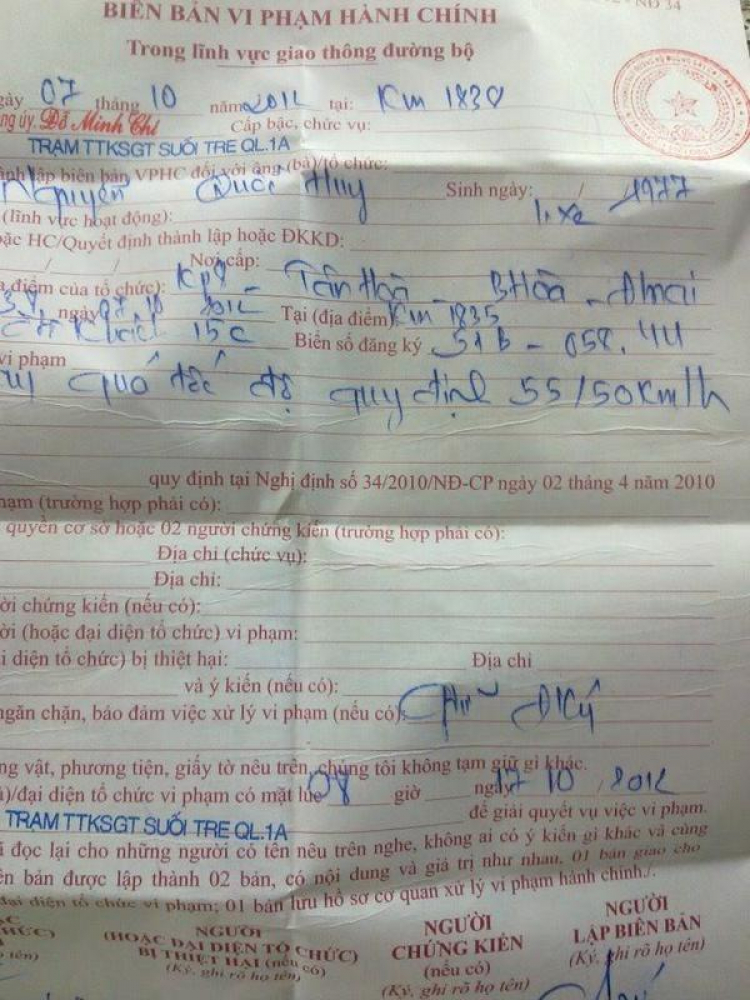 NĐ 34
BIÊN BẢN VI PHẠM HÀNH CHÍNH
Trong lĩnh vực giao thông đường bộ
gày 07 tháng 10 năm 2012 tại: Km 1830
ng úy. Đỗ Minh Chí Cấp bậc, chức vụ:
TRẠM TTKSGT SUỐI TRE QL.1A
ành lập biên bản VPHC đối với ông (bà)/tổ chức:
Nguyễn Quốc Huy Sinh ngày: / 1977
(lĩnh vực hoạt động): lái xe
oặc HC/Quyết định thành lập hoặc ĐKKD:
/ / Nơi cấp:
a điểm của tổ chức): Kp9 - Tân Hoà - BHòa - Đnai
ngày 07 10 2012 Tại (địa điểm) Km 1835
15C Biển số đăng ký 51B - 058.44
vi phạm
quá tốc độ quy định 55/50Km/h
quy định tại Nghị định số 34/2010/NĐ-CP ngày 02 tháng 4 năm 2010
hạm (trường hợp phải có):
quyền cơ sở hoặc 02 người chứng kiến (trường hợp phải có):
Địa chỉ (chức vụ):
Địa chỉ:
ời chứng kiến (nếu có):
ời (hoặc đại diện tổ chức) vi phạm:
i diện tổ chức) bị thiệt hại: Địa chỉ
và ý kiến (nếu có):
ngăn chặn, bảo đảm việc xử lý vi phạm (nếu có):
ng vật, phương tiện, giấy tờ nêu trên, chúng tôi không tạm giữ gì khác.
)/đại diện tổ chức vi phạm có mặt lúc 08 giờ ngày 17 10 / 2012
để giải quyết vụ việc vi phạm.
TRẠM TTKSGT SUỐI TRE QL.1A
i đọc lại cho những người có tên nêu trên nghe, không ai có ý kiến gì khác và cùng
ên bản được lập thành 02 bản, có nội dung và giá trị như nhau, 01 bản giao cho
đại diện tổ chức vi phạm; 01 bản lưu hồ sơ cơ quan xử lý vi phạm hành chính./.
NGƯỜI
(HOẶC ĐẠI DIỆN TỔ CHỨC)
BỊ THIỆT HẠI (nếu có)
(Ký, ghi rõ họ tên)
NGƯỜI
CHỨNG KIẾN
(nếu có)
(Ký, ghi rõ họ tên)
NGƯỜI
LẬP BIÊN BẢN
(Ký, ghi rõ họ tên)